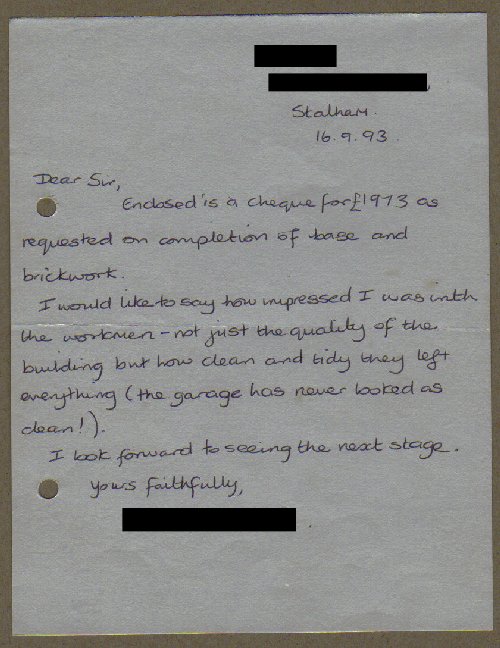 Stalham.
16.9.93.
Dear Sir,
Enclosed is a cheque for £1973 as
requested on completion of base and
brickwork.
I would like to say how impressed I was with
the workmen - not just the quality of the
building but how clean and tidy they left
everything (the garage has never looked as
clean!).
I look forward to seeing the next stage.
Yours faithfully,